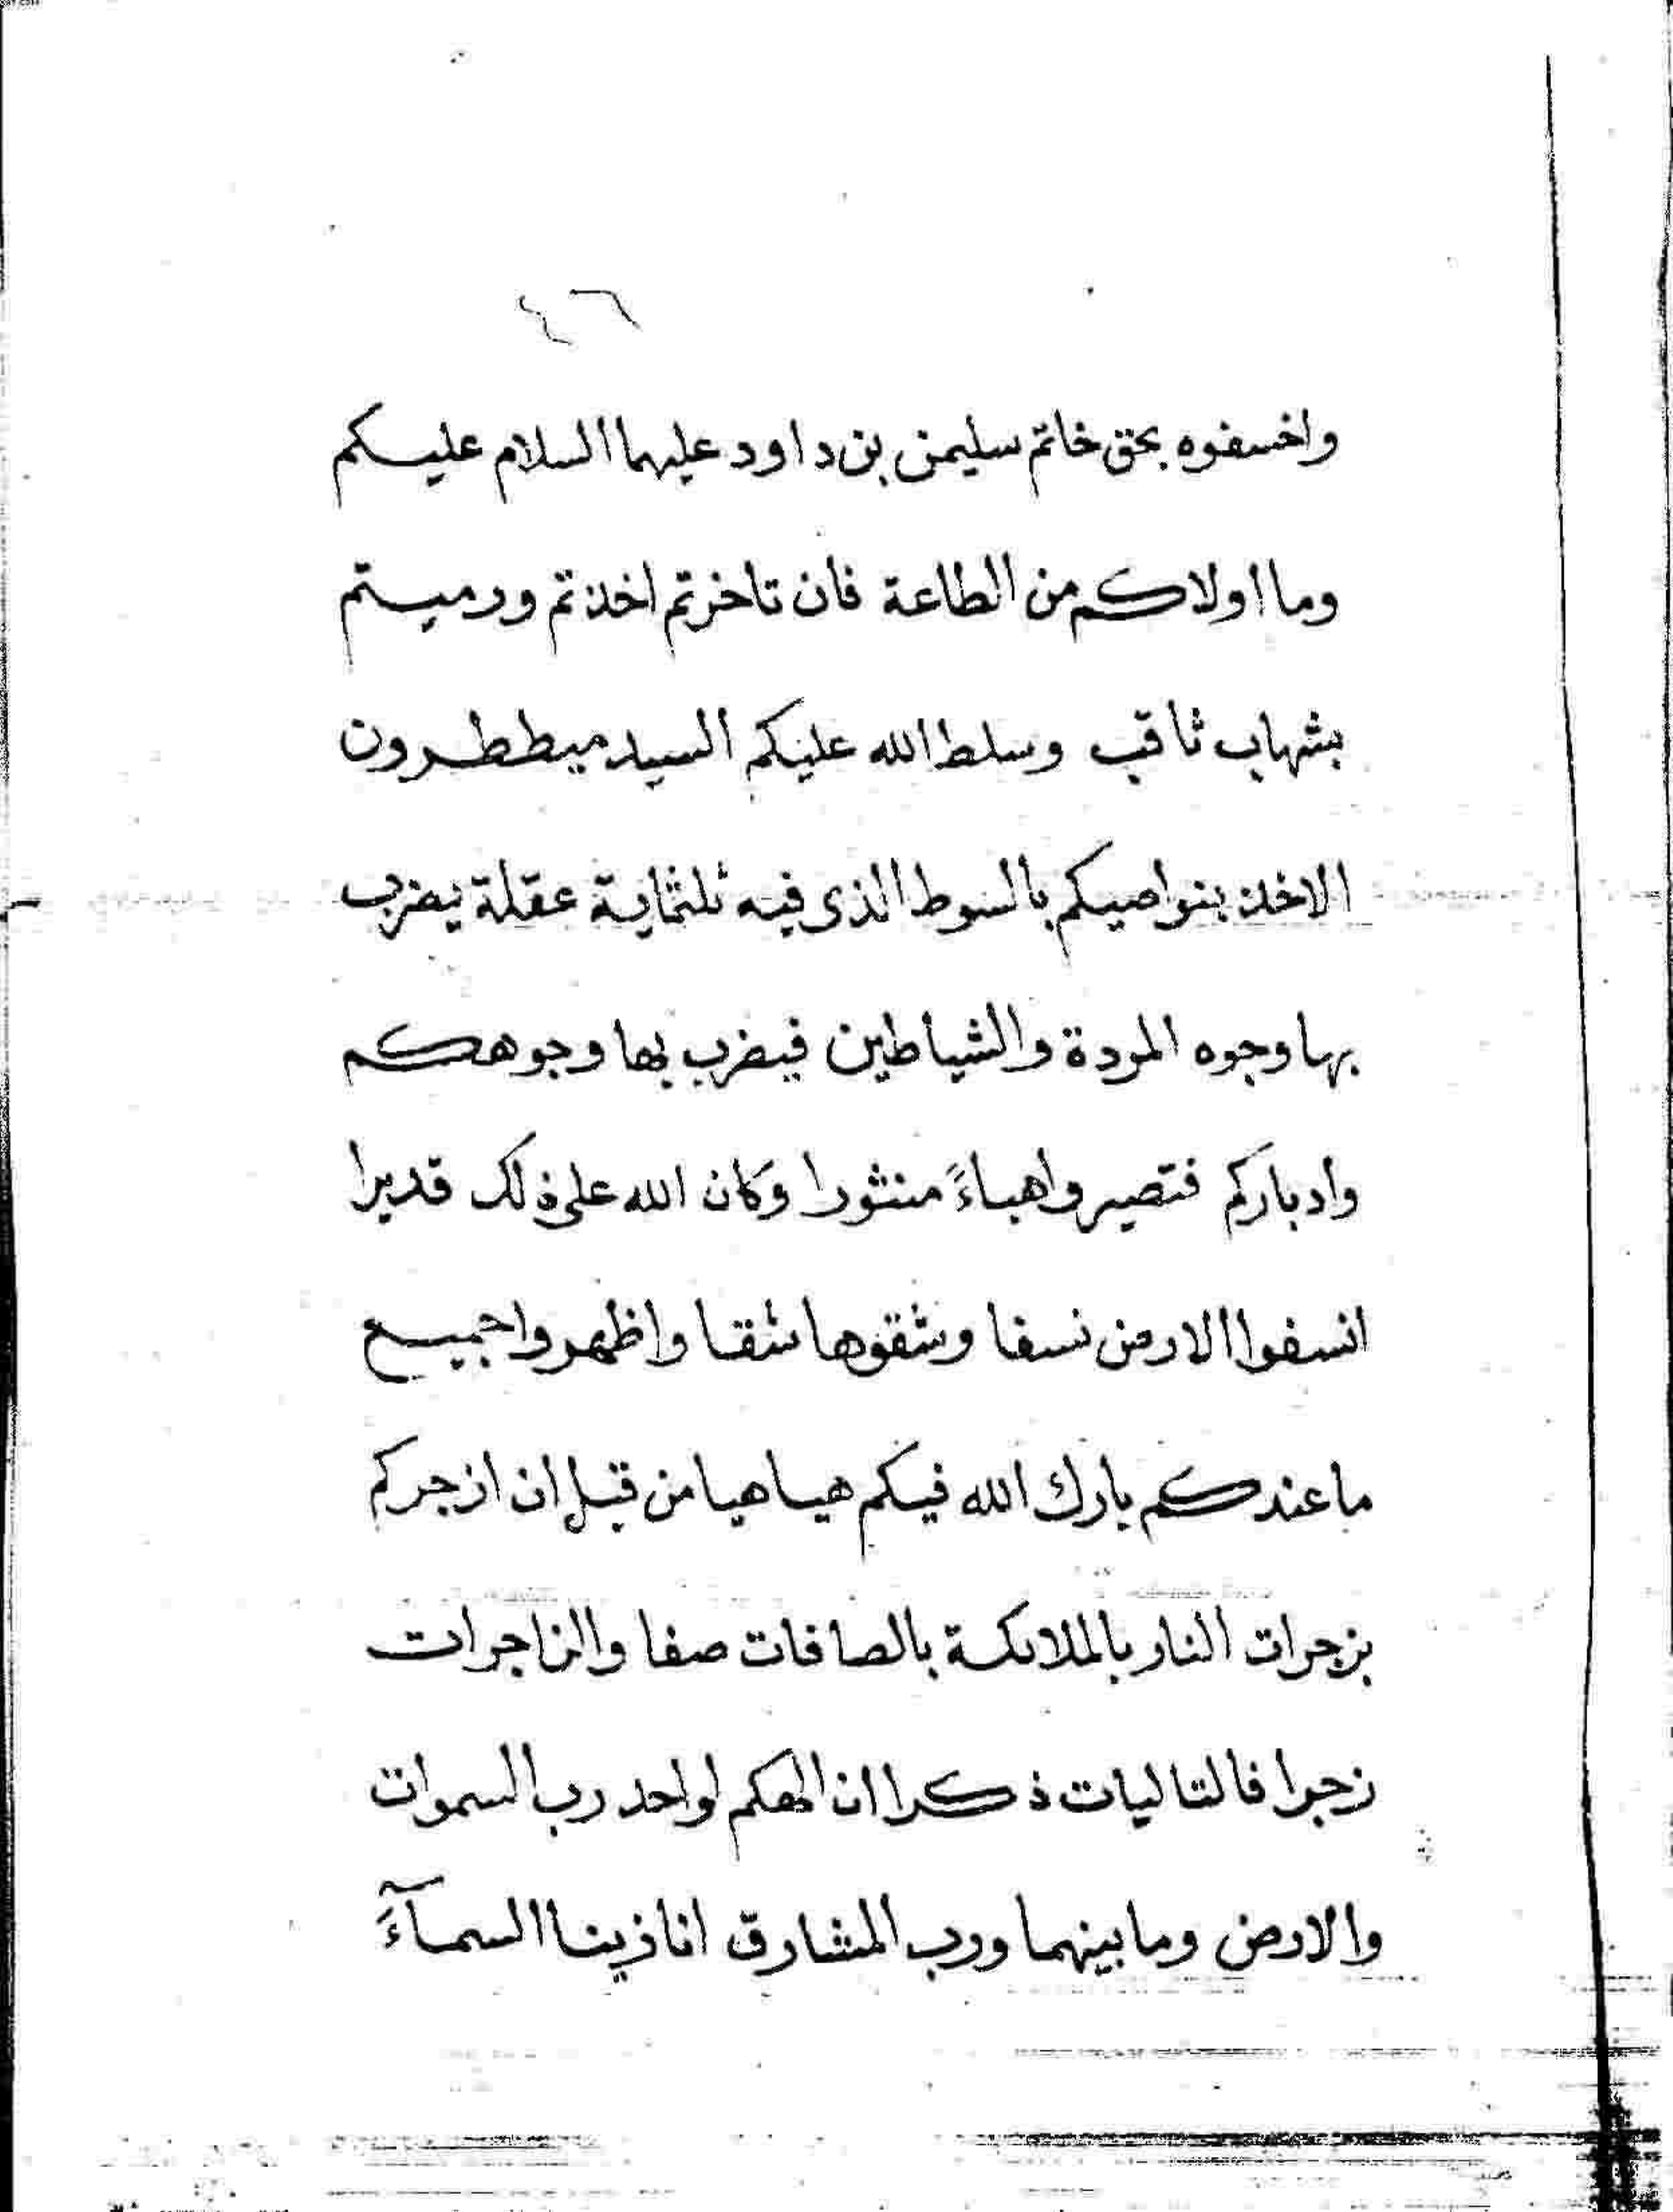 ٤٦
واخسفوه بحق خاتم سليمن بن داود عليهما السلام عليكم
وما اولاكم من الطاعة فان تاخرتم اخذتم ورميتم
بشهاب ثاقب وسلط الله عليكم السيد ميططرون
الاخذ بنواصيكم بالسوط الذى فيه ثلثماية عقلة يضرب
بها وجوه المردة والشياطين فيضرب بها وجوهكم
وادباركم فتصيروا هباءً منثورا وكان الله على ذلك قديرا
انسفوا الارض نسفا وشقوها شقا واظهروا جميع
ما عندكم بارك الله فيكم هيا هيا من قبل ان ازجركم
بزجرات النار بالملائكة بالصافات صفا والزاجرات
زجرا فالتاليات ذكرا ان الهكم لواحد رب السموات
والارض وما بينهما ورب المشارق انا زينا السمآءَ